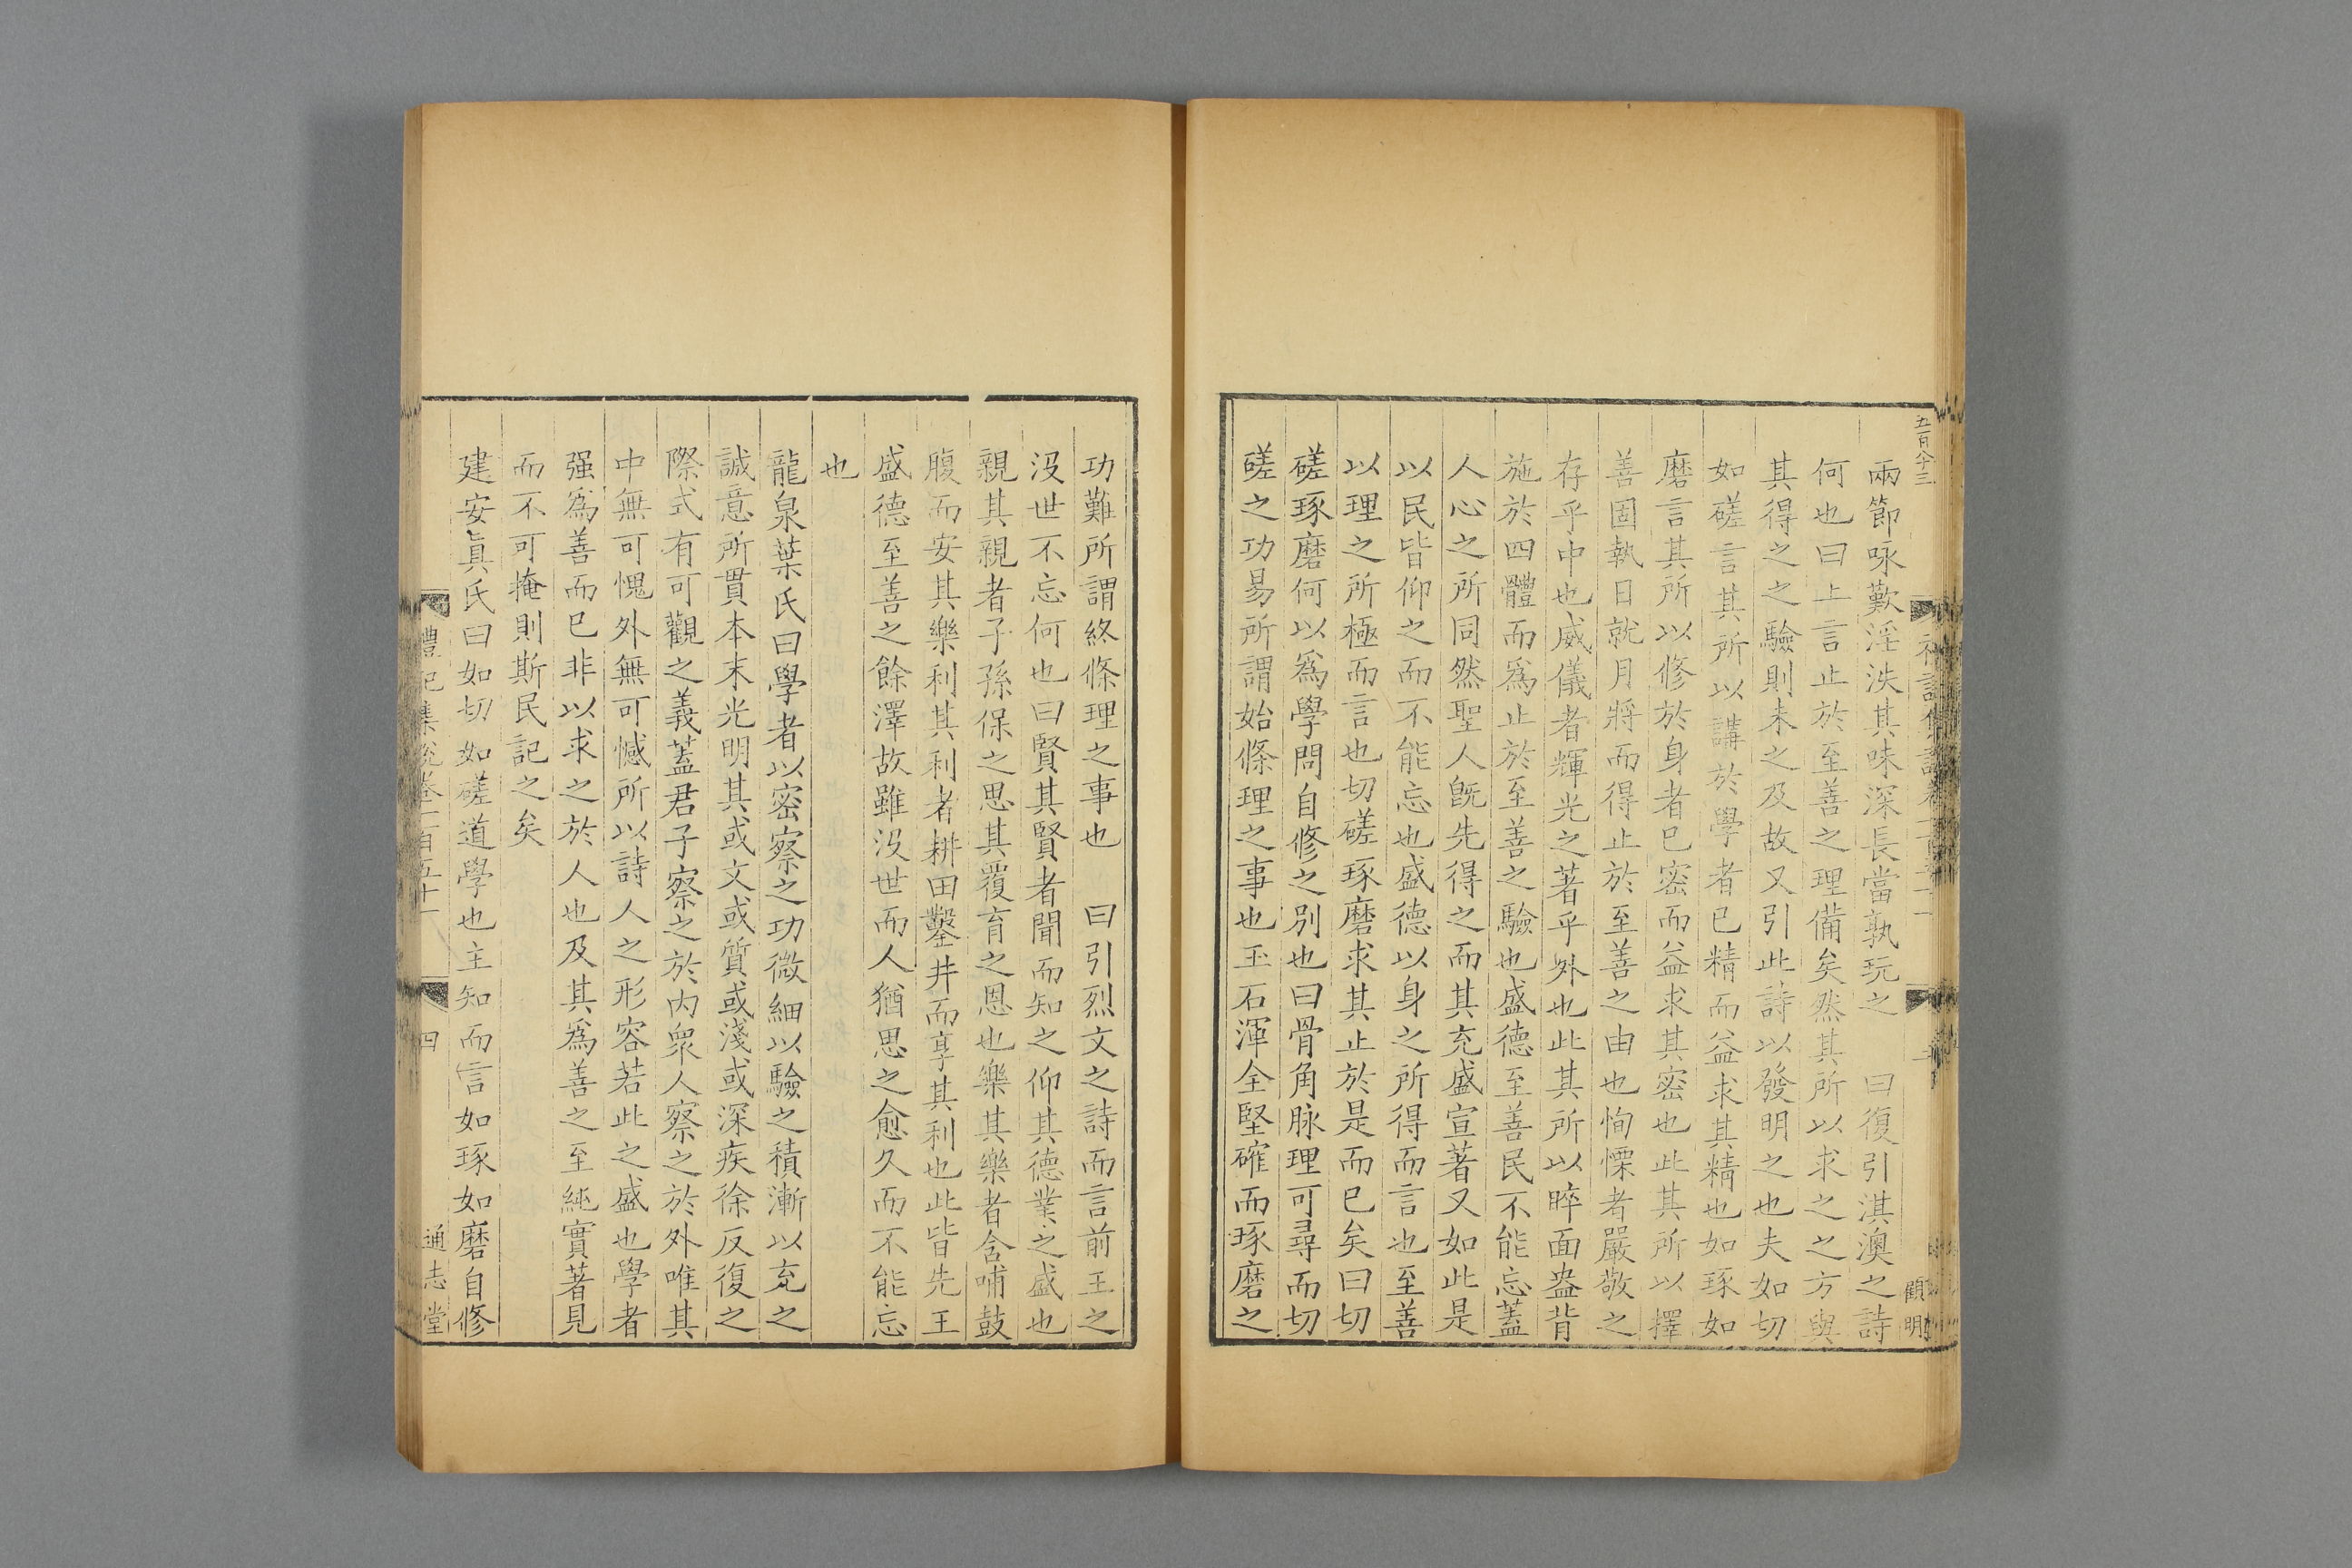 五百八十三
兩節咏歎淫泆其味深長當孰玩之　曰復引淇澳之詩
何也曰上言止於至善之理備矣然其所以求之之方與
其得之之驗則未之及故又引此詩以發明之也夫如切
如磋言其所以講於學者已精而益求其精也如琢如
磨言其所以修於身者已密而益求其密也此其所以擇
善固執日就月將而得止於至善之由也恂慄者嚴敬之
存乎中也威儀者輝光之著乎外也此其所以睟面盎背
施於四體而爲止於至善之驗也盛德至善民不能忘蓋
人心之所同然聖人旣先得之而其充盛宣著又如此是
以民皆仰之而不能忘也盛德以身之所得而言也至善
以理之所極而言也切磋琢磨求其止於是而已矣曰切
磋琢磨何以爲學問自修之別也曰骨角脉理可尋而切
磋之功易所謂始條理之事也玉石渾全堅確而琢磨之
顧明
功難所謂終條理之事也　曰引烈文之詩而言前王之
沒世不忘何也曰賢其賢者聞而知之仰其德業之盛也
親其親者子孫保之思其覆育之恩也樂其樂者含哺鼓
腹而安其樂利其利者耕田鑿井而享其利也此皆先王
盛德至善之餘澤故雖沒世而人猶思之愈久而不能忘
也
龍泉葉氏曰學者以密察之功微細以驗之積漸以充之
誠意所貫本末光明其或文或質或淺或深疾徐反復之
際式有可觀之義蓋君子察之於內衆人察之於外唯其
中無可愧外無可憾所以詩人之形容若此之盛也學者
强爲善而已非以求之於人也及其爲善之至純實著見
而不可掩則斯民記之矣
建安眞氏曰如切如磋道學也主知而言如琢如磨自修
禮記集說卷一百五十一
四
通志堂